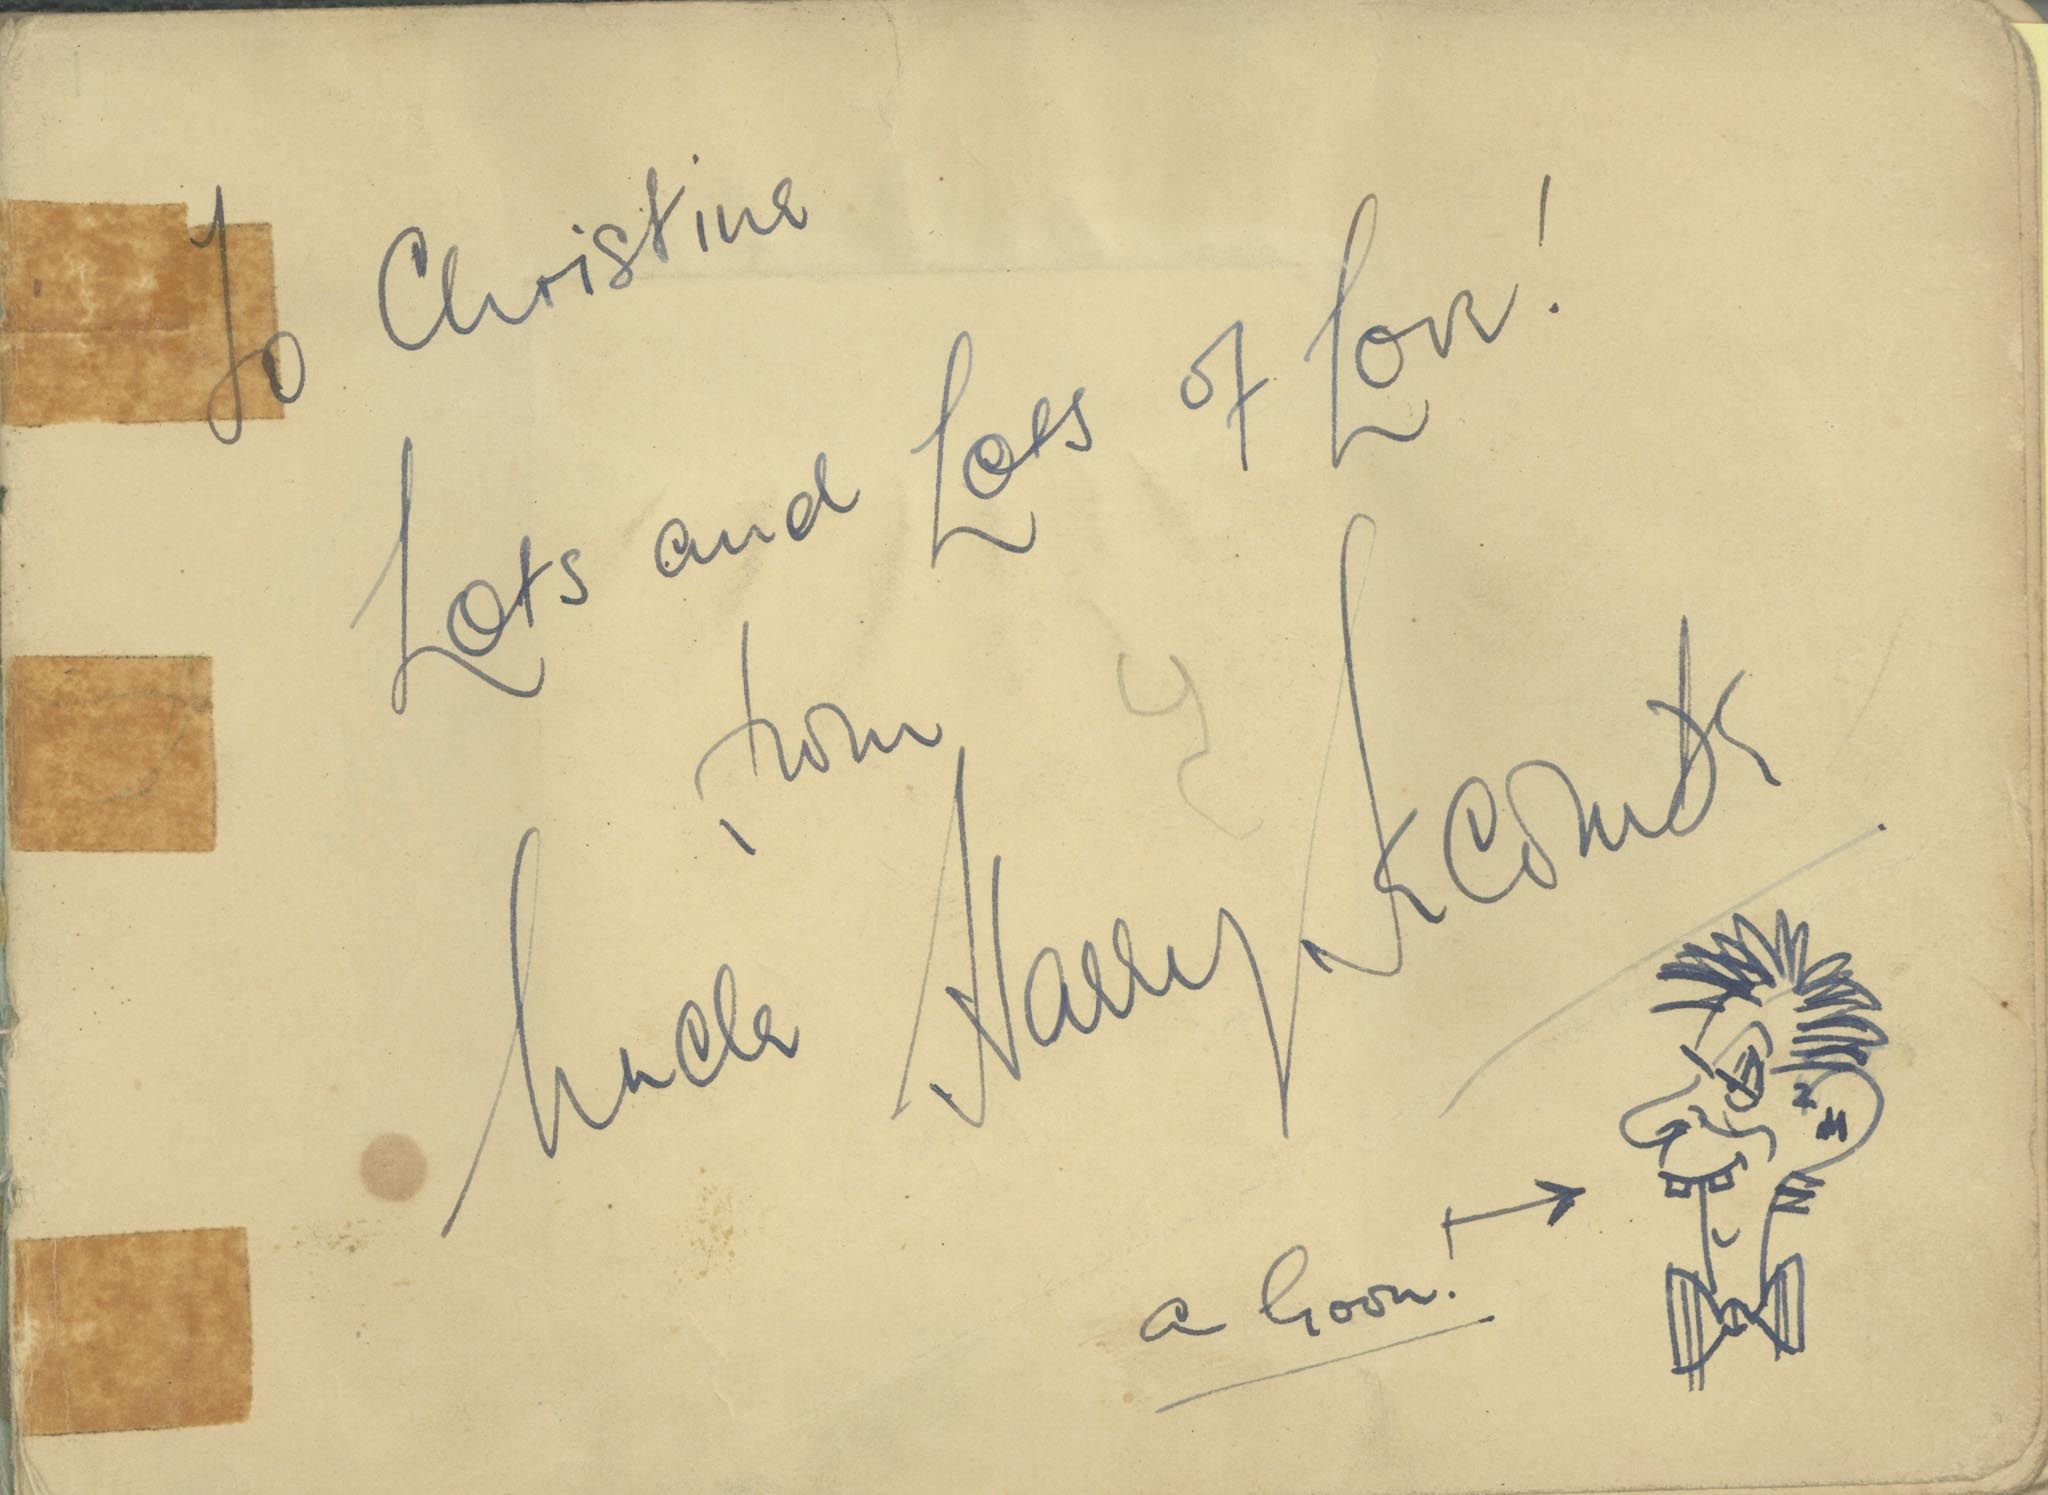 To Christine
Lots and Lots of Love!
from
Uncle Harry Secombe
a Goon!